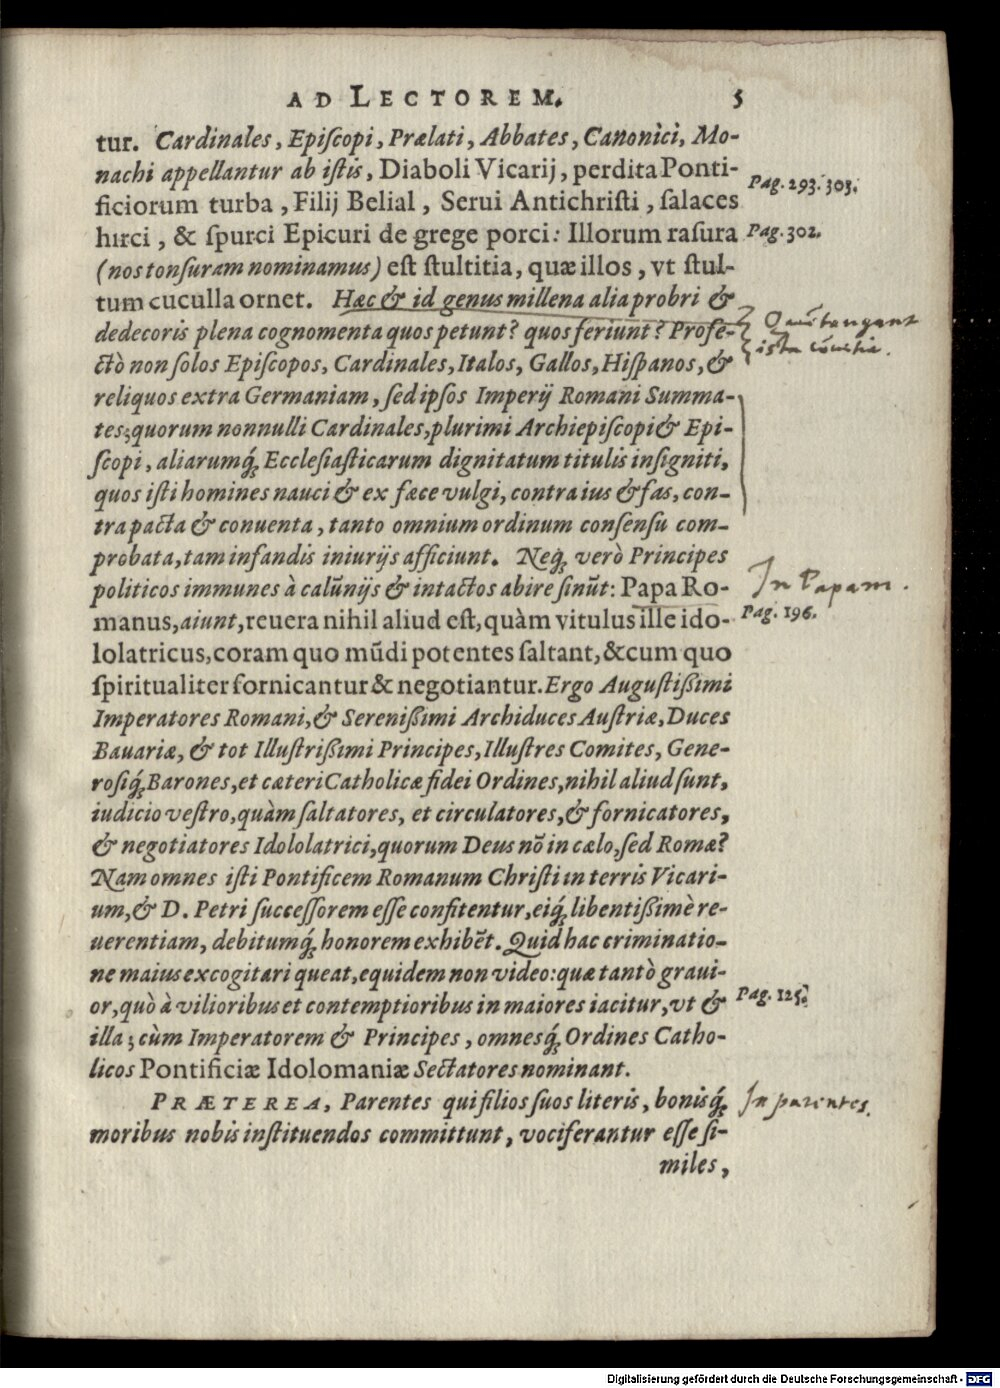 AD LECTOREM. 5
tur. Cardinales, Epiſcopi, Prælati, Abbates, Canonici, Mo-
nachi appellantur ab iſtis, Diaboli Vicarij, perdita Ponti-
Pag. 293. 303.
ficiorum turba, Filij Belial, Serui Antichriſti, ſalaces
hirci, & ſpurci Epicuri de grege porci: Illorum raſura
Pag. 302.
(nos tonſuram nominamus) eſt ſtultitia, quæ illos, vt ſtul-
tum cuculla ornet. Hæc & id genus millena alia probri &
dedecoris plena cognomenta quos petunt? quos feriunt? Profe-
Quē tangant
ista
ctò non ſolos Epiſcopos, Cardinales, Italos, Gallos, Hiſpanos, &
reliquos extra Germaniam, ſed ipſos Imperij Romani Summa-
tes; quorum nonnulli Cardinales, plurimi Archiepiſcopi & Epi-
ſcopi, aliarumq́ꝫ Eccleſiaſticarum dignitatum titulis inſigniti,
quos iſti homines nauci & ex fæce vulgi, contra ius & fas, con-
tra pacta & conuenta, tanto omnium ordinum conſenſu com-
probata, tam infandis iniurijs afficiunt. Neq́ꝫ verò Principes
politicos immunes à calūnijs & intactos abire ſinūt: Papa Ro-
In Papam.
manus, aiunt, reuera nihil aliud eſt, quàm vitulus ille ido-
Pag. 196.
lolatricus, coram quo mūdi potentes ſaltant, & cum quo
ſpiritualiter fornicantur & negotiantur. Ergo Auguſtißimi
Imperatores Romani, & Sereniſſimi Archiduces Auſtriæ, Duces
Bauariæ, & tot Illuſtrißimi Principes, Illuſtres Comites, Gene-
roſiq́ꝫ Barones, et cæteri Catholicæ fidei Ordines, nihil aliud ſunt,
iudicio veſtro, quàm ſaltatores, et circulatores, & fornicatores,
& negotiatores Idololatrici, quorum Deus nō in cælo, ſed Romæ?
Nam omnes iſti Pontificem Romanum Chriſti in terris Vicari-
um, & D. Petri ſucceſſorem eſſe confitentur, eiq́ꝫ libentißimè re-
uerentiam, debitumq́ꝫ honorem exhibēt. Quid hac criminatio-
ne maius excogitari queat, equidem non video: quæ tantò graui-
or, quò à vilioribus et contemptioribus in maiores iacitur, vt &
Pag. 125.
illa; cùm Imperatorem & Principes, omnesq́ꝫ Ordines Catho-
licos Pontificiæ Idolomaniæ Sectatores nominant.
PRÆTEREA, Parentes qui filios ſuos literis, bonisq́ꝫ
In parentes.
moribus nobis inſtituendos committunt, vociferantur eſſe ſi-
miles,
Digitalisierung gefördert durch die Deutsche Forschungsgemeinschaft - DFG